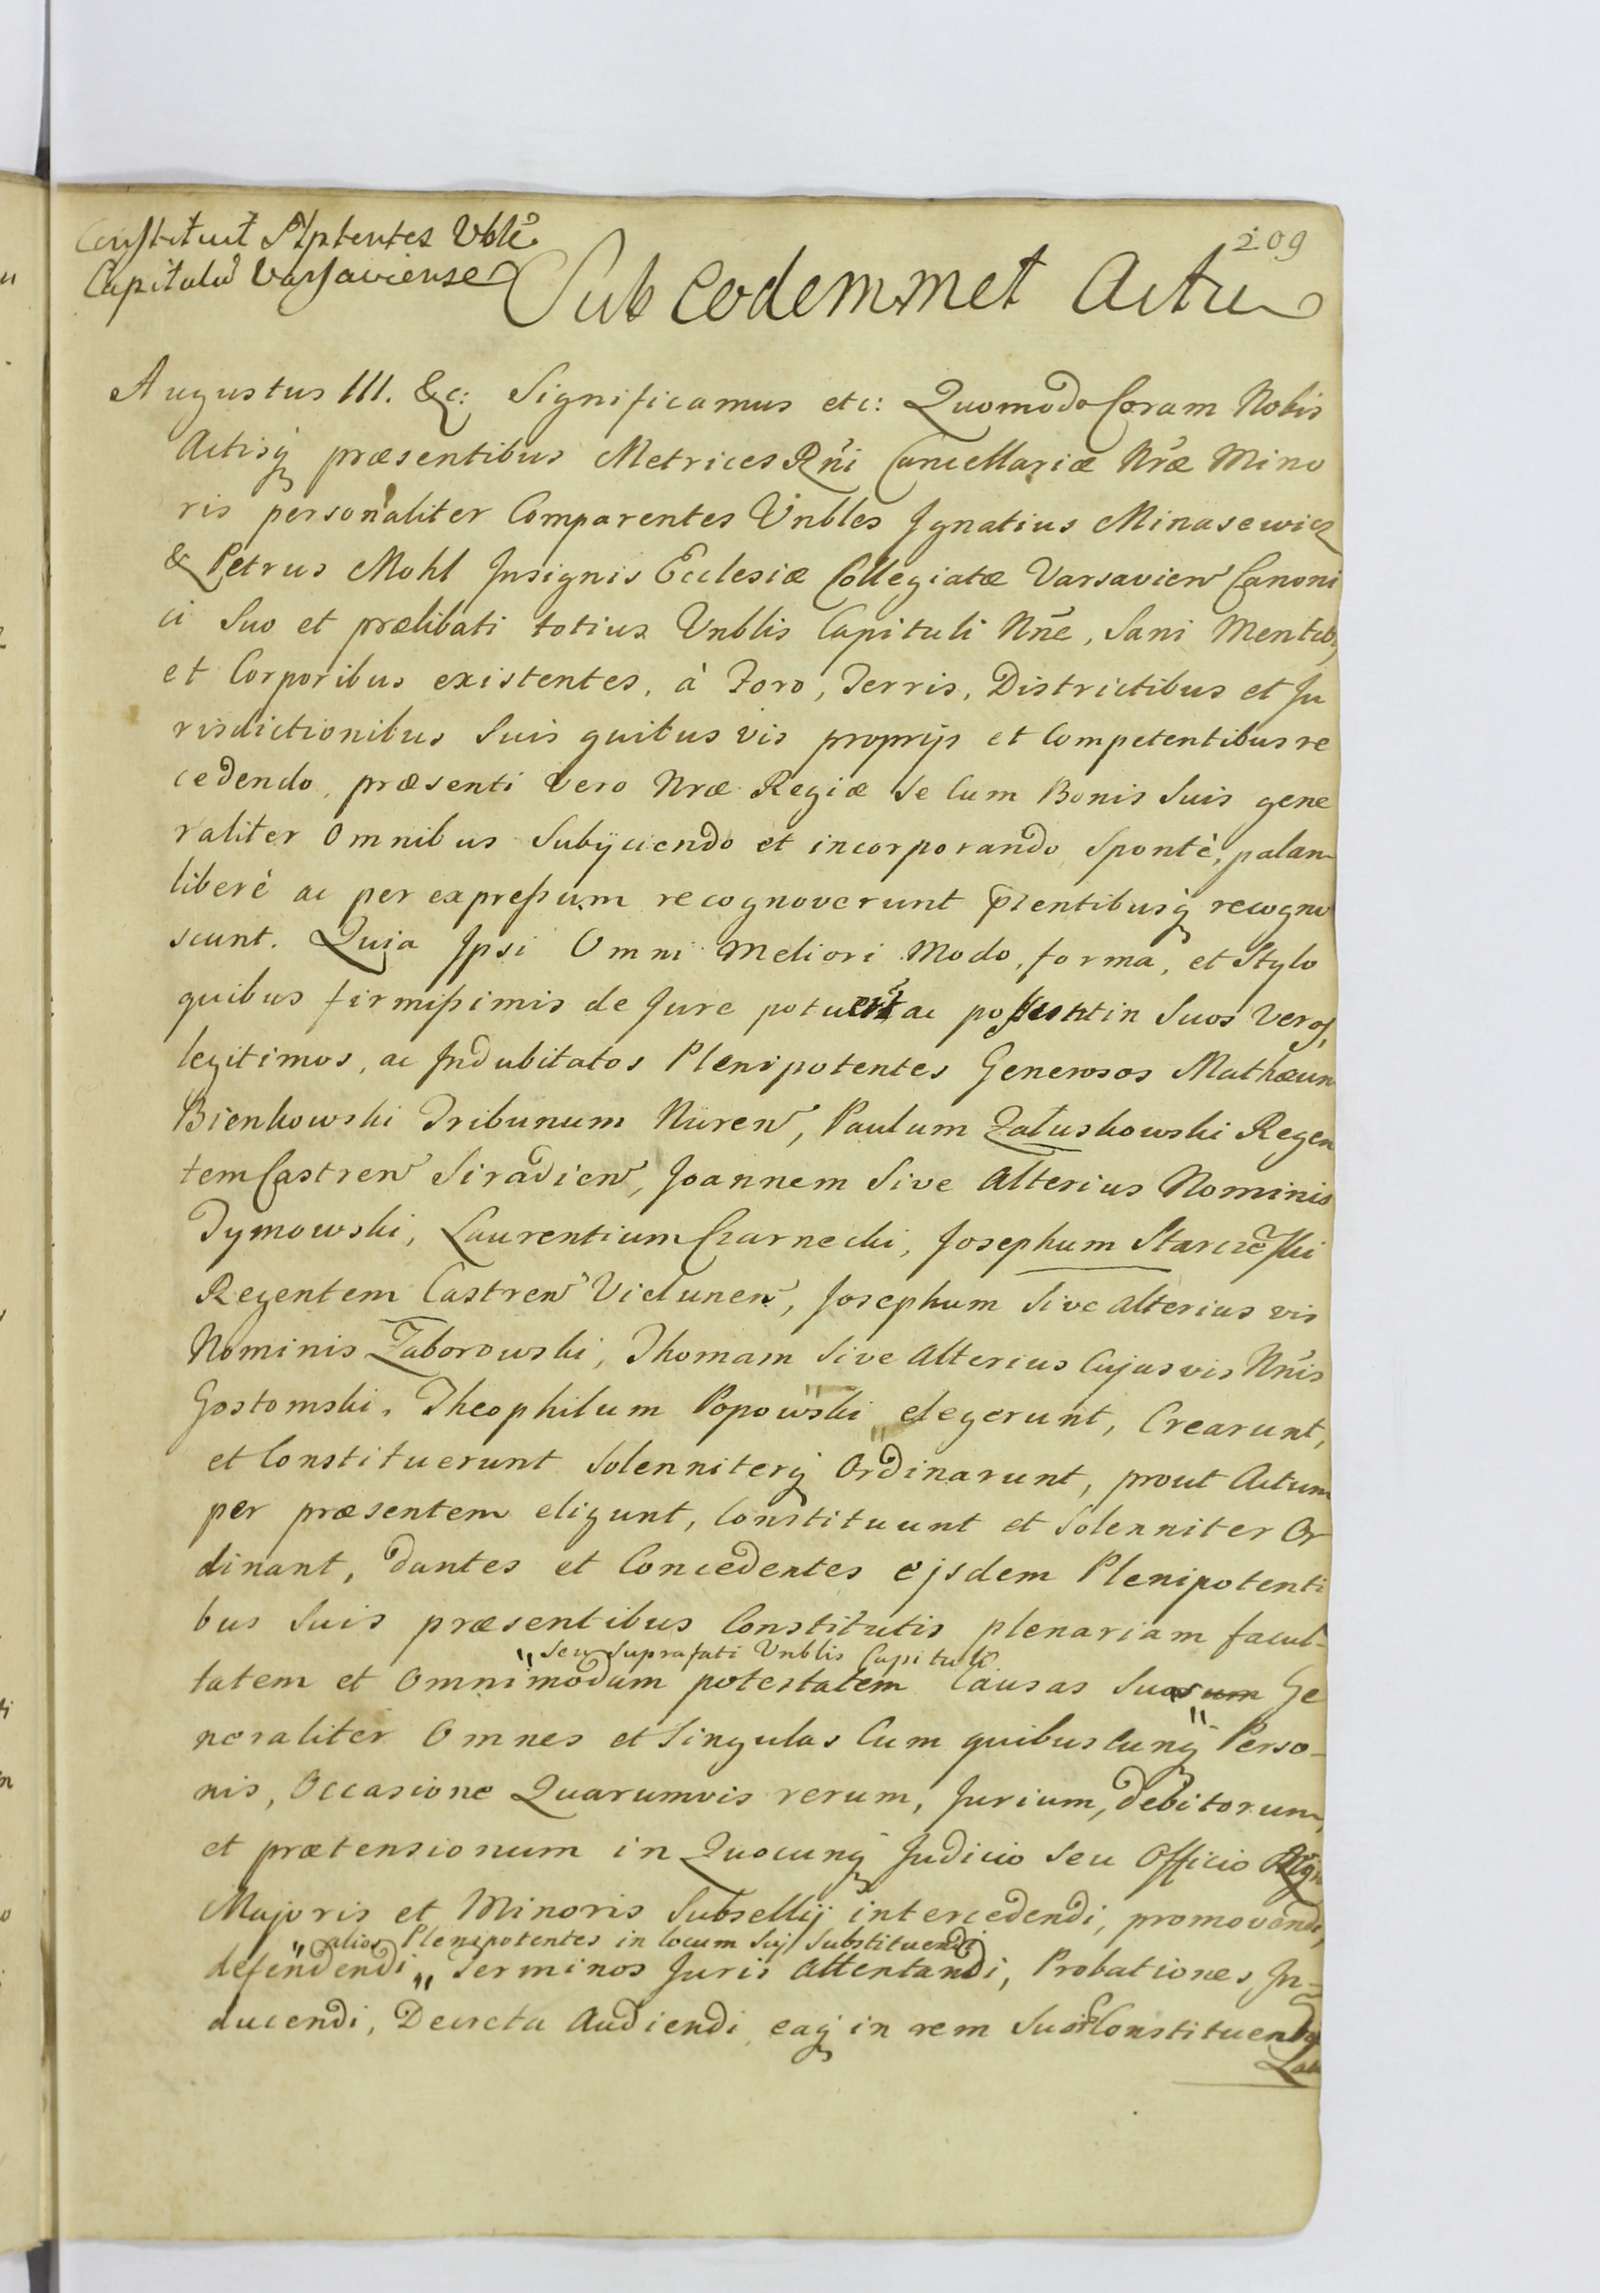 Constituit Plptentes Vble
Capitulu Varsaviense
209
Sub eodemmet Actu
Augustus III. &c: Significamus etc: Quomodo Coram Nobis
Actisq præsentibus Metrices Rni Cancellariæ Nræ Mino
ris personaliter Comparentes Vnbles Ignatius Minasewicz
& Petrus Mohl Insignis Ecclesiæ Collegiatæ Varsavien Canoni
ci Suo et prælibati totius Vnblis Capituli Nne, Sani Mentib,
et Corporibus existentes, à Foro, Terris, Districtibus et Ju
risdictionibus Suis quibus vis proprijs et Competentibus re
cedendo, præsenti vero Nræ Regiæ Se Cum Bonis Suis gene
raliter Omnibus Subijciendo et incorporando, Spontè, palam
liberè ac per expressum recognoverunt pntibusq recogno
scunt. Quia Ipsi Omni Meliori Modo, forma, et Stylo
quibus firmissimis de Jure potuert ac possunt in Suos Veros,
legitimos, ac Indubitatos Plenipotentes Generosos Mathæum
Bienkowski Tribunum Nuren, Paulum Załuskowski Regen
tem Castren Siradien, Joannem Sive Alterius Nominis
Tymowski, Laurentium Czarnecki, Josephum Starczeski
Regentem Castren Vielunen, Josephum Sive alterius vis
Nominis Zaborowski, Thomam Sive Alterius Cujusvis Nnis
Gostomski, Theophilum Popowski elegerunt, Crearunt,
et Constituerunt Solenniterq Ordinarunt, prout Actum
per præsentem eligunt, Constituunt et Solenniter Or
dinant, dantes et Concedentes ejsdem Plenipotenti
bus Suis præsentibus Constitutis plenariam facul-
" seu Suprafati Vnblis Capituli
tatem et Omnimodam potestatem Causas Suas um Ge
neraliter Omnes et Singulas Cum quibuscunq Perso-
nis, Occasione Quarumvis rerum, Jurium, debitorum,
et prætensionum in Quocunq Judicio Seu Officio Regn
Majoris et Minoris Subsellij intercedendi, promovendi,
" alios Plenipotentes in locum Sui Substituendi
defendendi " Terminos Juris Attentandi, Probationes In-
ducendi, Decreta Audiendi eaq in rem Suor Constituendi